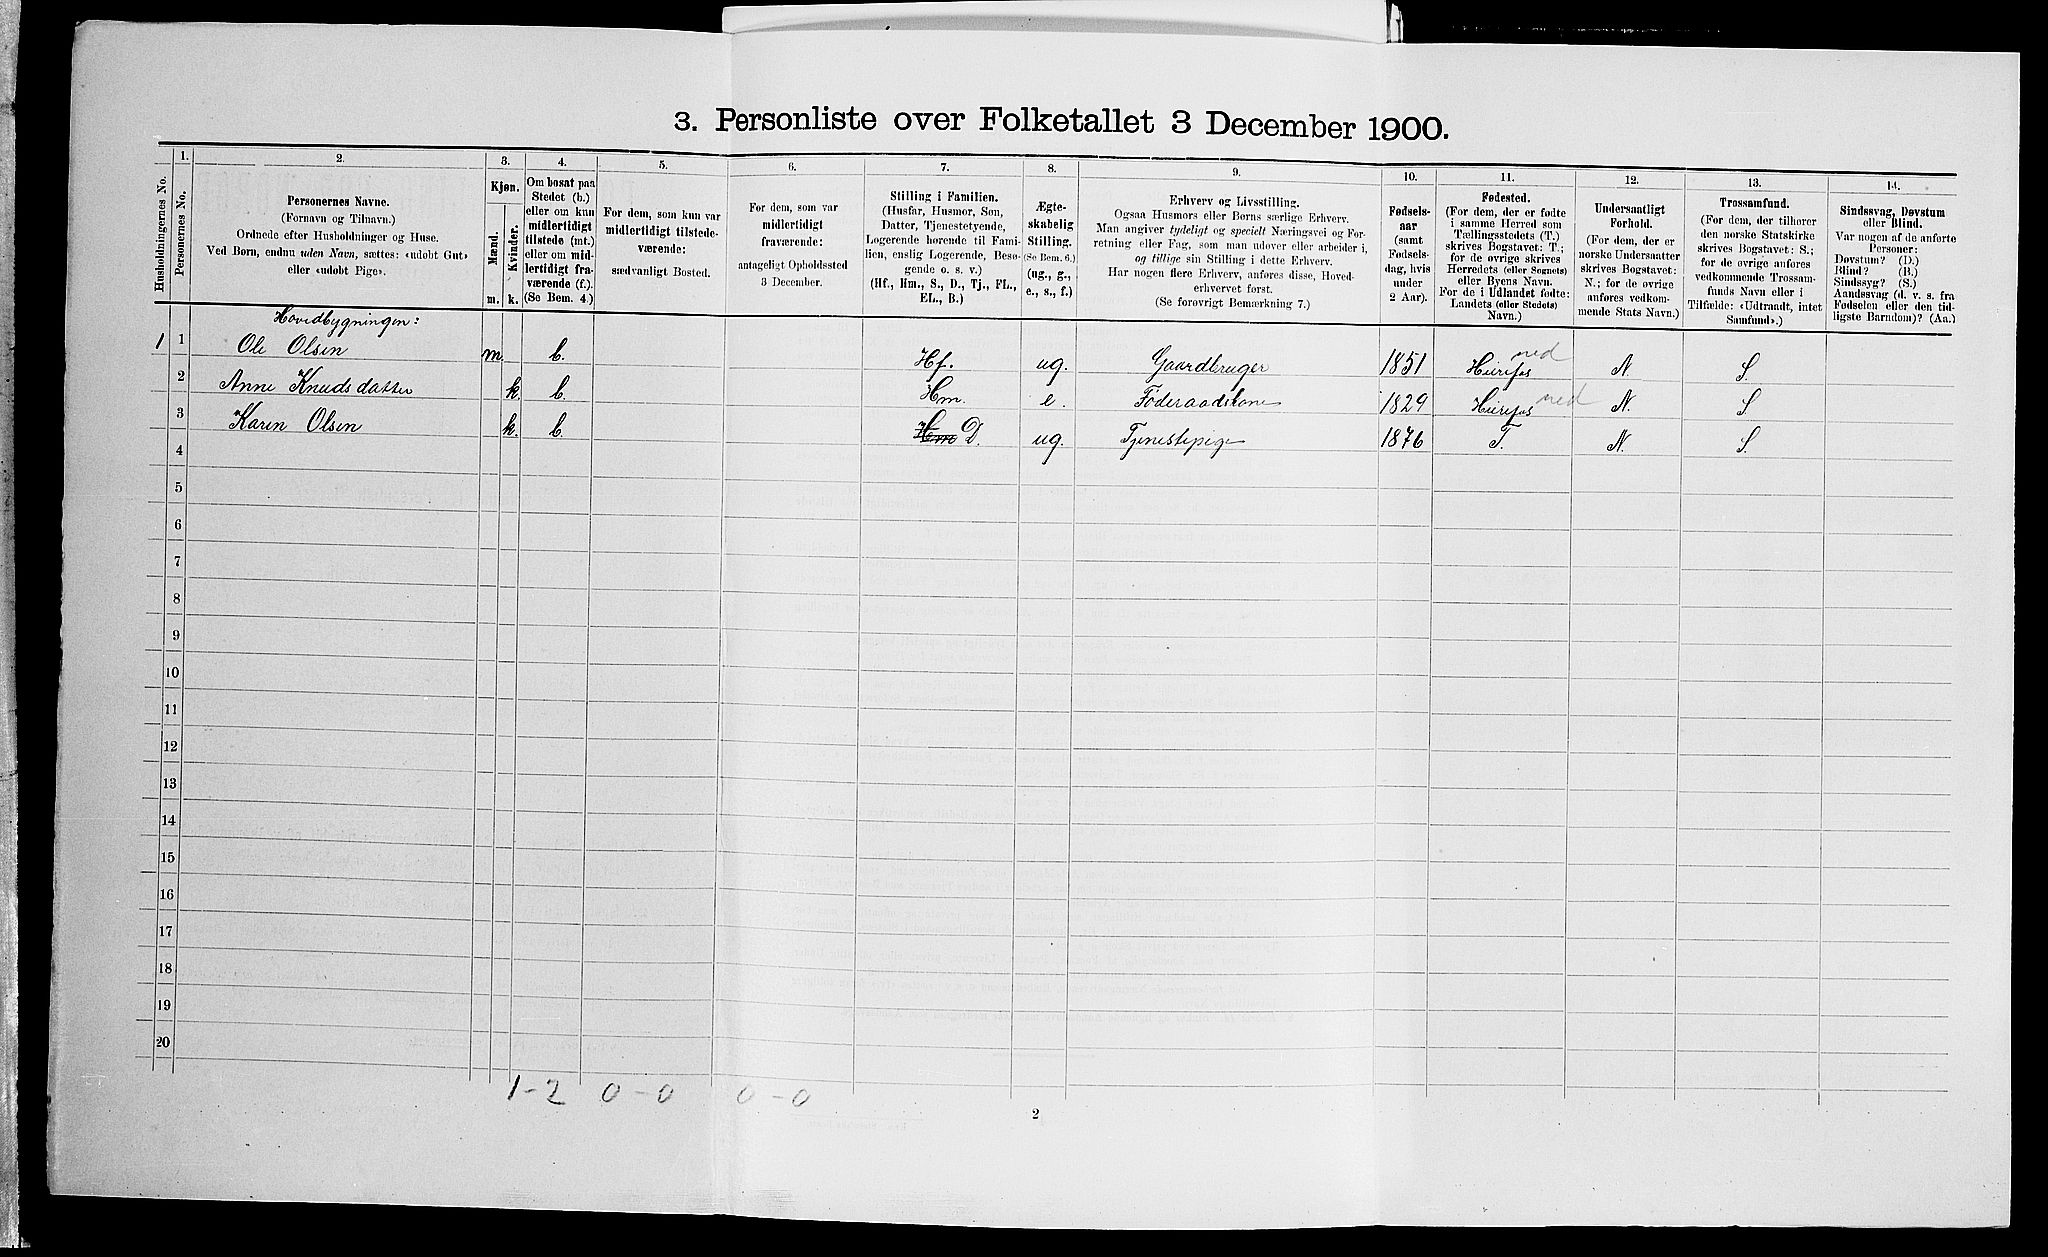 3. Personliste over Folketallet 3 December 1900.
Husholdningernes No.
1.
Personernes No.
2.
Personernes Navne.
(Fornavn og Tilnavn.)
Ordnede efter Husholdninger og Huse.
Ved Børn, endnu uden Navn, sættes: «udøbt Gut»
eller «udøbt Pige».
3.
Kjøn.
Mænd.
Kvinder.
m. k.
4.
Om bosat paa
Stedet (b.)
eller om kun
midlertidigt
tilstede (mt.)
eller om mid-
lertidigt fra-
værende (f.).
(Se Bem. 4.)
5.
For dem, som kun var
midlertidigt tilstede-
værende:
sædvanligt Bosted.
6.
For dem, som var
midlertidigt
fraværende:
antageligt Opholdssted
3 December.
7.
Stilling i Familien.
(Husfar, Husmor, Søn,
Datter, Tjenestetyende,
Logerende hørende til Fami-
lien, enslig Logerende, Besø-
gende o. s. v.)
(Hf., Hm., S., D., Tj., FL.,
EL., B.)
8.
Ægte-
skabelig
Stilling.
(Se Bem. 6.)
(ug., g.,
e., s., f.)
9.
Erhverv og Livsstilling.
Ogsaa Husmors eller Børns særlige Erhverv.
Man angiver tydeligt og specielt Næringsvei og For-
retning eller Fag, som man udøver eller arbeider i,
og tillige sin Stilling i dette Erhverv.
Har nogen flere Erhverv, anføres disse, Hoved-
erhvervet først.
(Se forøvrigt Bemærkning 7.)
10.
Fødsels-
aar
(samt
Fødsels-
dag, hvis
under
2 Aar).
11.
Fødested.
(For dem, der er fødte
i samme Herred som
Tællingsstedets (T.)
skrives Bogstavet: T;
for de øvrige skrives
Herredets (eller Sognets)
eller Byens Navn.
For de i Udlandet fødte:
Landets (eller Stedets)
Navn.)
12.
Undersaatligt
Forhold.
(For dem, der er
norske Undersaatter
skrives Bogstavet:
N.; for de øvrige
anføres vedkom-
mende Stats Navn.)
13.
Trossamfund.
(For dem, der tilhører
den norske Statskirke
skrives Bogstavet: S.;
for de øvrige anføres
vedkommende Trossam-
funds Navn eller i
Tilfælde: «Udtraadt, intet
Samfund».)
14.
Sindssvag, Døvstum
eller Blind.
Var nogen af de anførte
Personer:
Døvstum? (D.)
Blind? (B.)
Sindssyg? (S.)
Aandssvag (d. v. s. fra
Fødselen eller den tid-
ligste Barndom)? (Aa.)
Hovedbygningen:
1 1 Ole Olsen m. b. Hf. ug. Gaardbruger 1851 ned N S.
2 Anne Knudsdatter k. b. Hm. e. Føderaadskone 1829 ned N. S
3 Karen Olsen k. b. Hm D. ug. Tjenestepige 1876 T. N. S.
4
5
6
7
8
9
10
11
12
13
14
15
16
17
18
19
20
1-2 0-0 0-0
2